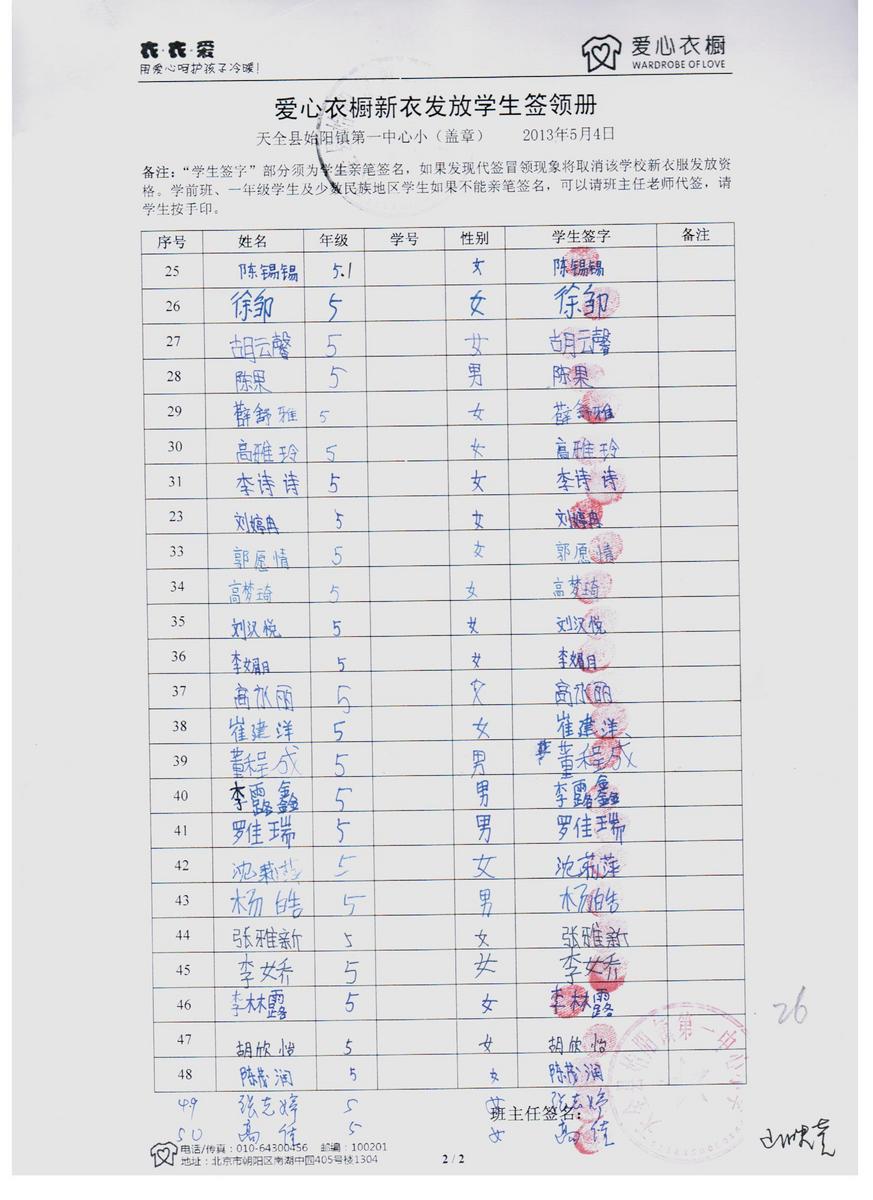 衣·衣·爱
用爱心呵护孩子冷暖!
爱心衣橱
WARDROBE OF LOVE
爱心衣橱新衣发放学生签领册
天全县始阳镇第一中心小（盖章） 2013年5月4日
备注：“学生签字”部分须为学生亲笔签名，如果发现代签冒领现象将取消该学校新衣服发放资
格。学前班、一年级学生及少数民族地区学生如果不能亲笔签名，可以请班主任老师代签，请
学生按手印。
序号 姓名 年级 学号 性别 学生签字 备注
25 陈锡锡 5.1 女 陈锡锡
26 徐邹 5 女 徐邹
27 胡云馨 5 女 胡云馨
28 陈果 5 男 陈果
29 薛舒雅 5 女 薛舒雅
30 高雅玲 5 女 高雅玲
31 李诗诗 5 女 李诗诗
23 刘婷冉 5 女 刘婷冉
33 郭愿情 5 女 郭愿情
34 高梦琦 5 女 高梦琦
35 刘汉悦 5 女 刘汉悦
36 李娟 5 女 李娟
37 高水丽 5 女 高水丽
38 崔建洋 5 女 崔建洋
39 董程成 5 男 董程成
40 李露鑫 5 男 李露鑫
41 罗佳瑞 5 男 罗佳瑞
42 沈莉萍 5 女 沈莉萍
43 杨皓 5 男 杨皓
44 张雅新 5 女 张雅新
45 李女乔 5 女 李女乔
46 李林露 5 女 李林露
47 胡欣怡 5 女 胡欣怡
48 陈茂润 5 女 陈茂润
49 张志婷 5 女 张志婷
50 高佳 5 女 高佳
班主任签名：
26
电话/传真：010-64300456 邮编：100201
地址：北京市朝阳区南湖中园405号楼1304
2 / 2